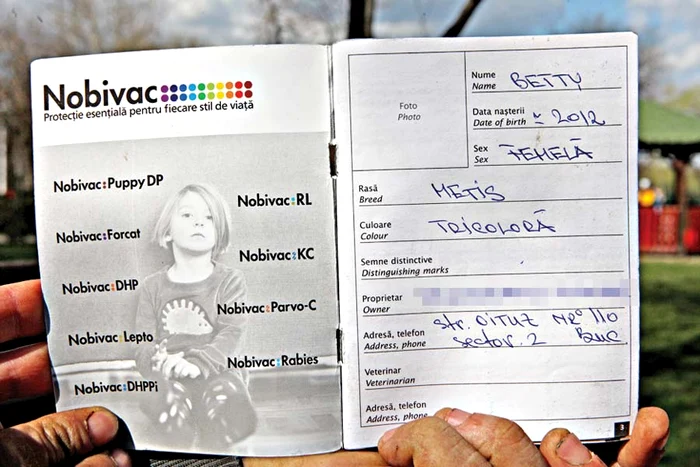 Nobivac
Protecție esențială pentru fiecare stil de viață
Nobivac:Puppy DP
Nobivac:RL
Nobivac:Forcat
Nobivac:KC
Nobivac:DHP
Nobivac:Parvo-C
Nobivac:Lepto
Nobivac:Rabies
Nobivac:DHPPi
Foto
Photo
Nume BETTY
Name
Data nașterii ~ 2012
Date of birth
Sex FEMELĂ
Sex
Rasă METIS
Breed
Culoare TRICOLORĂ
Colour
Semne distinctive
Distinguishing marks
Proprietar
Owner
Adresă, telefon str. OITUZ NR° 110
Address, phone sector. 2 Buc
Veterinar
Veterinarian
Adresă, telefon
Address, phone
3